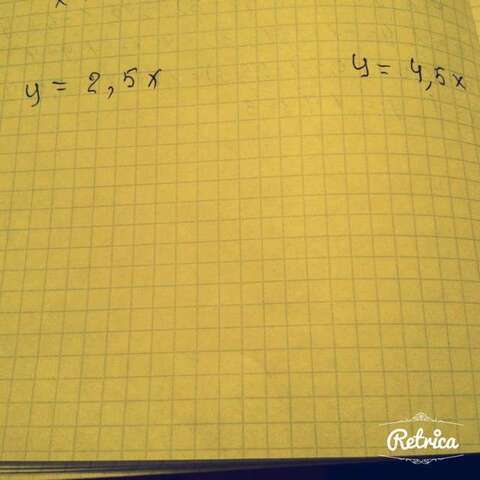 y = 2,5x
y = 4,5x
Retrica